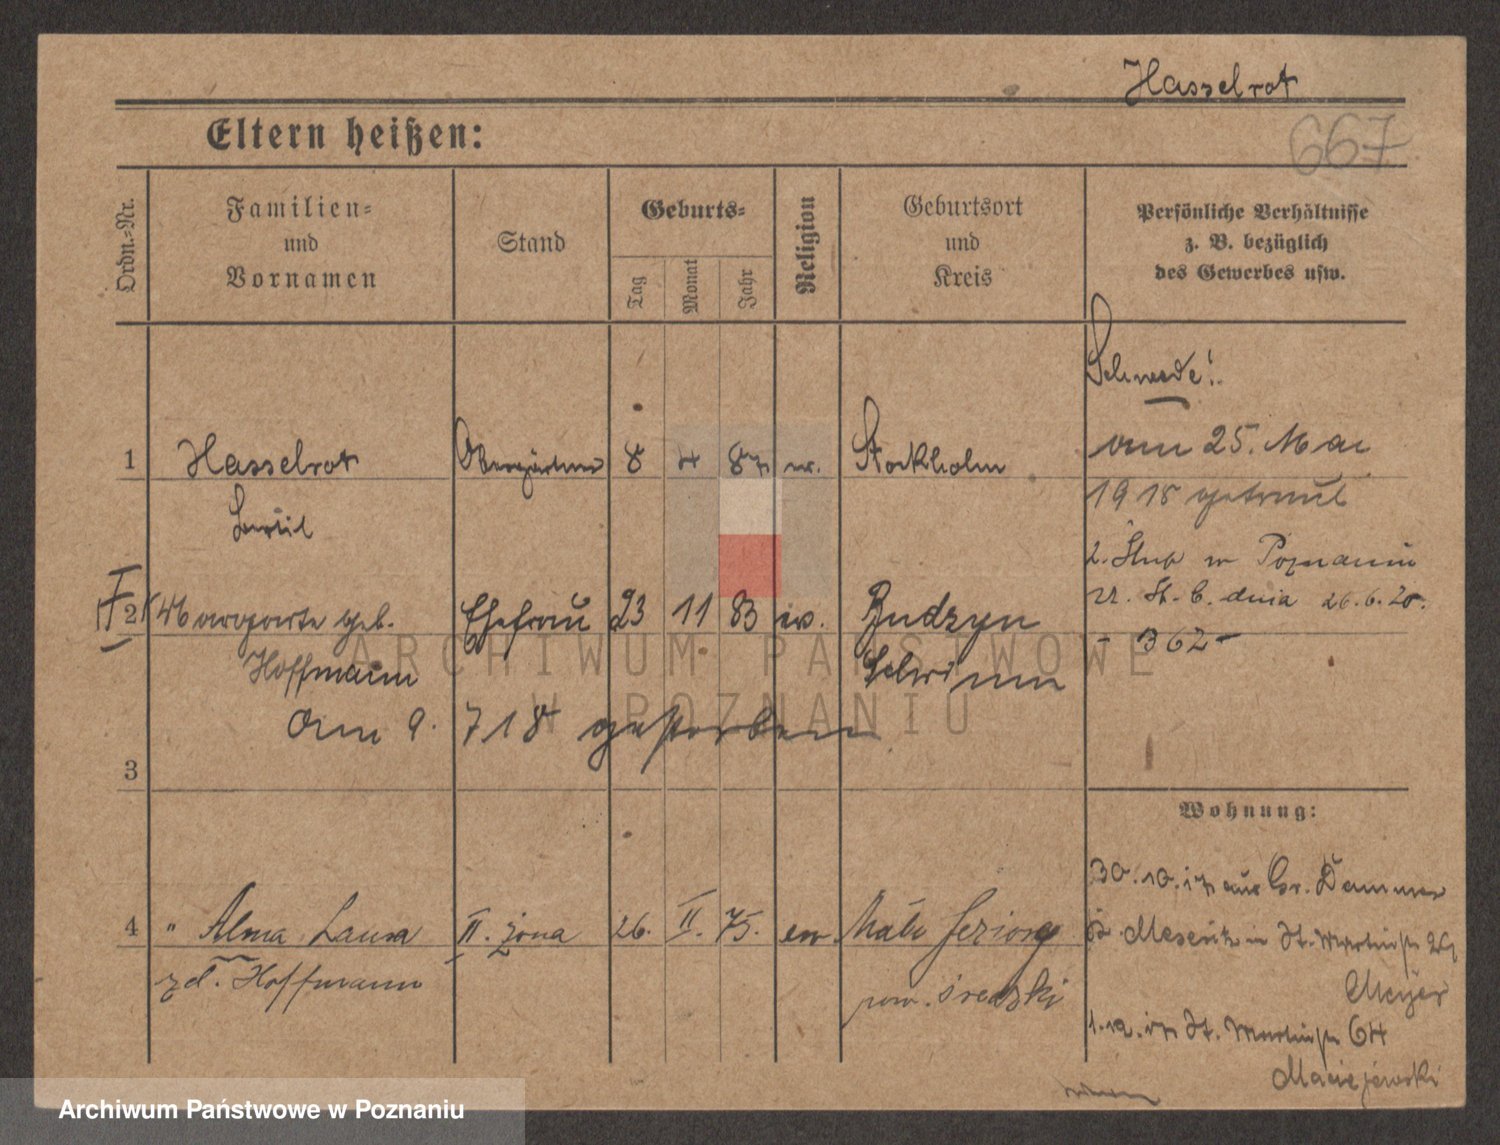 Hasselrot
667
Eltern heißen:
Ordn.-Nr.
Familien-
und
Vornamen
Stand
Geburts-
Tag
Monat
Jahr
Religion
Geburtsort
und
Kreis
Persönliche Verhältnisse
z. B. bezüglich
des Gewerbes usw.
Schwede!
1 Hasselrot Obergärtner 8 4 87 ev. Stockholm
Bertil
am 25. Mai
1918 getraut
2. ślub w Poznaniu
U. St. C. dnia 26.6.20.
- 362 -
2 Margarete geb. Ehefrau 23 11 83 ev. Budzyn
Hoffmann Schrimm
am 9. 7 18 gestorben
3
Wohnung:
30.10.17 aus Gr. Dammer
Kr. Meseritz in St. Martinstr
Meyer
4 " Alma Laura II. żona 26. II. 75. ew. Małe Jeziory
zd. Hoffmann pow. średzki
1.12.17 St. Martinstr 64
Maciejewski
ARCHIWUM PAŃSTWOWE
W POZNANIU
Archiwum Państwowe w Poznaniu